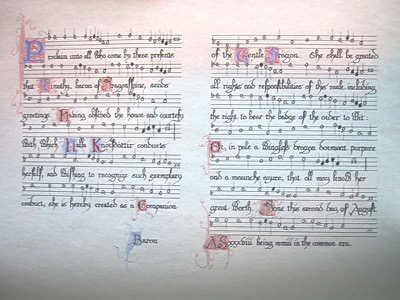 Proclaim unto all who come by these presents
that Timothy, baron of Dragonspine, sends
greetings. Having observed the honor and courtesy
with which Halla Knotsdottir conducts
herself, and wishing to recognize such exemplary
conduct, she is hereby created as a Companion
Baron
of the Gentle Dragon. She shall be granted
all rights and responsibilities of this rank including
the right to bear the badge of the order to wit:
Or, in pale a wingless dragon dormant purpure
and a maunche azure, that all may know her
great worth. Done this second day of August
AS being in the common era.